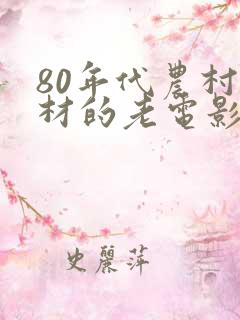 80年代農村
材的老電影
史麗萍